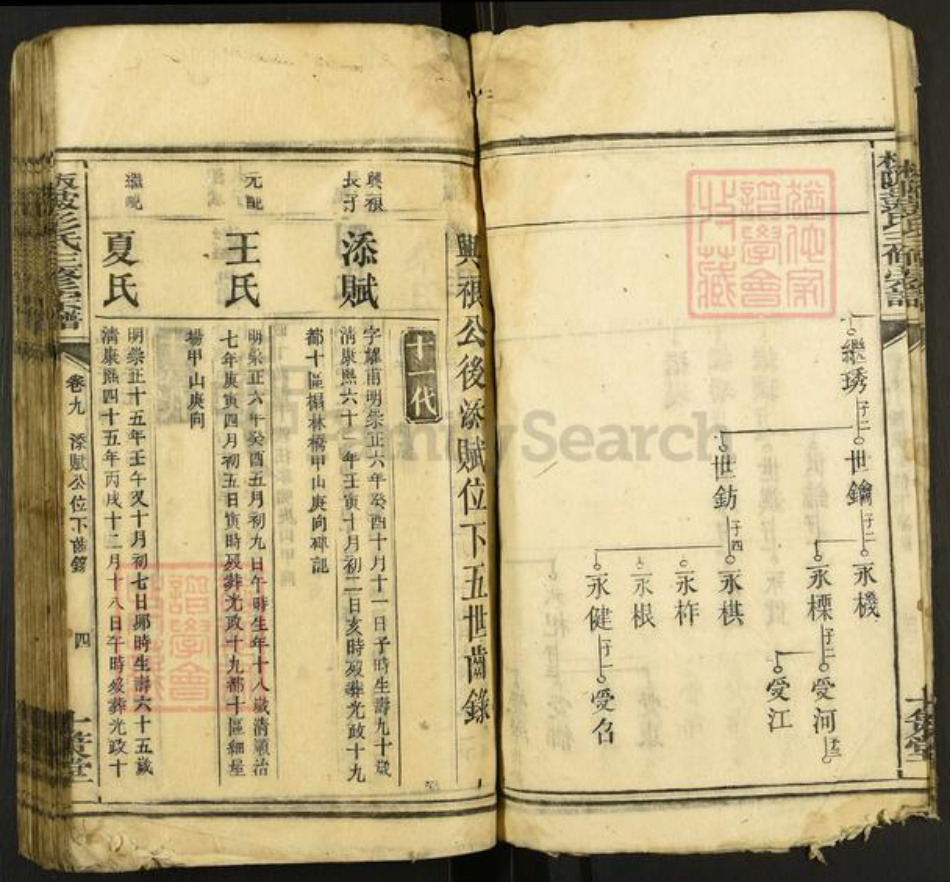 繼琇
子二
世鑰
子二
世鈁
子四
永機
永㮚
子二
永棋
永柞
永根
永健
子一
受河
受江
受名
興根公後添賦位下五世齒錄
十一代
興根
長子
添賦
字耀甫明崇正六年癸酉十月十一日子時生壽九十歲
清康熙六十一年壬寅十月初二日亥時歿葬光政十九
都十區榻林橋甲山庚向碑記
元配
王氏
明崇正六年癸酉五月初九日午時生年十八歲清順治
七年庚寅四月初五日寅時歿葬光政十九都十區細屋
場甲山庚向
繼配
夏氏
明崇正十五年壬午又十月初七日卯時生壽六十五歲
清康熙四十五年丙戌十二月十八日午時歿葬光政十
氏三修宗譜
卷九
添賦公位下齒錄
四
FamilySearch